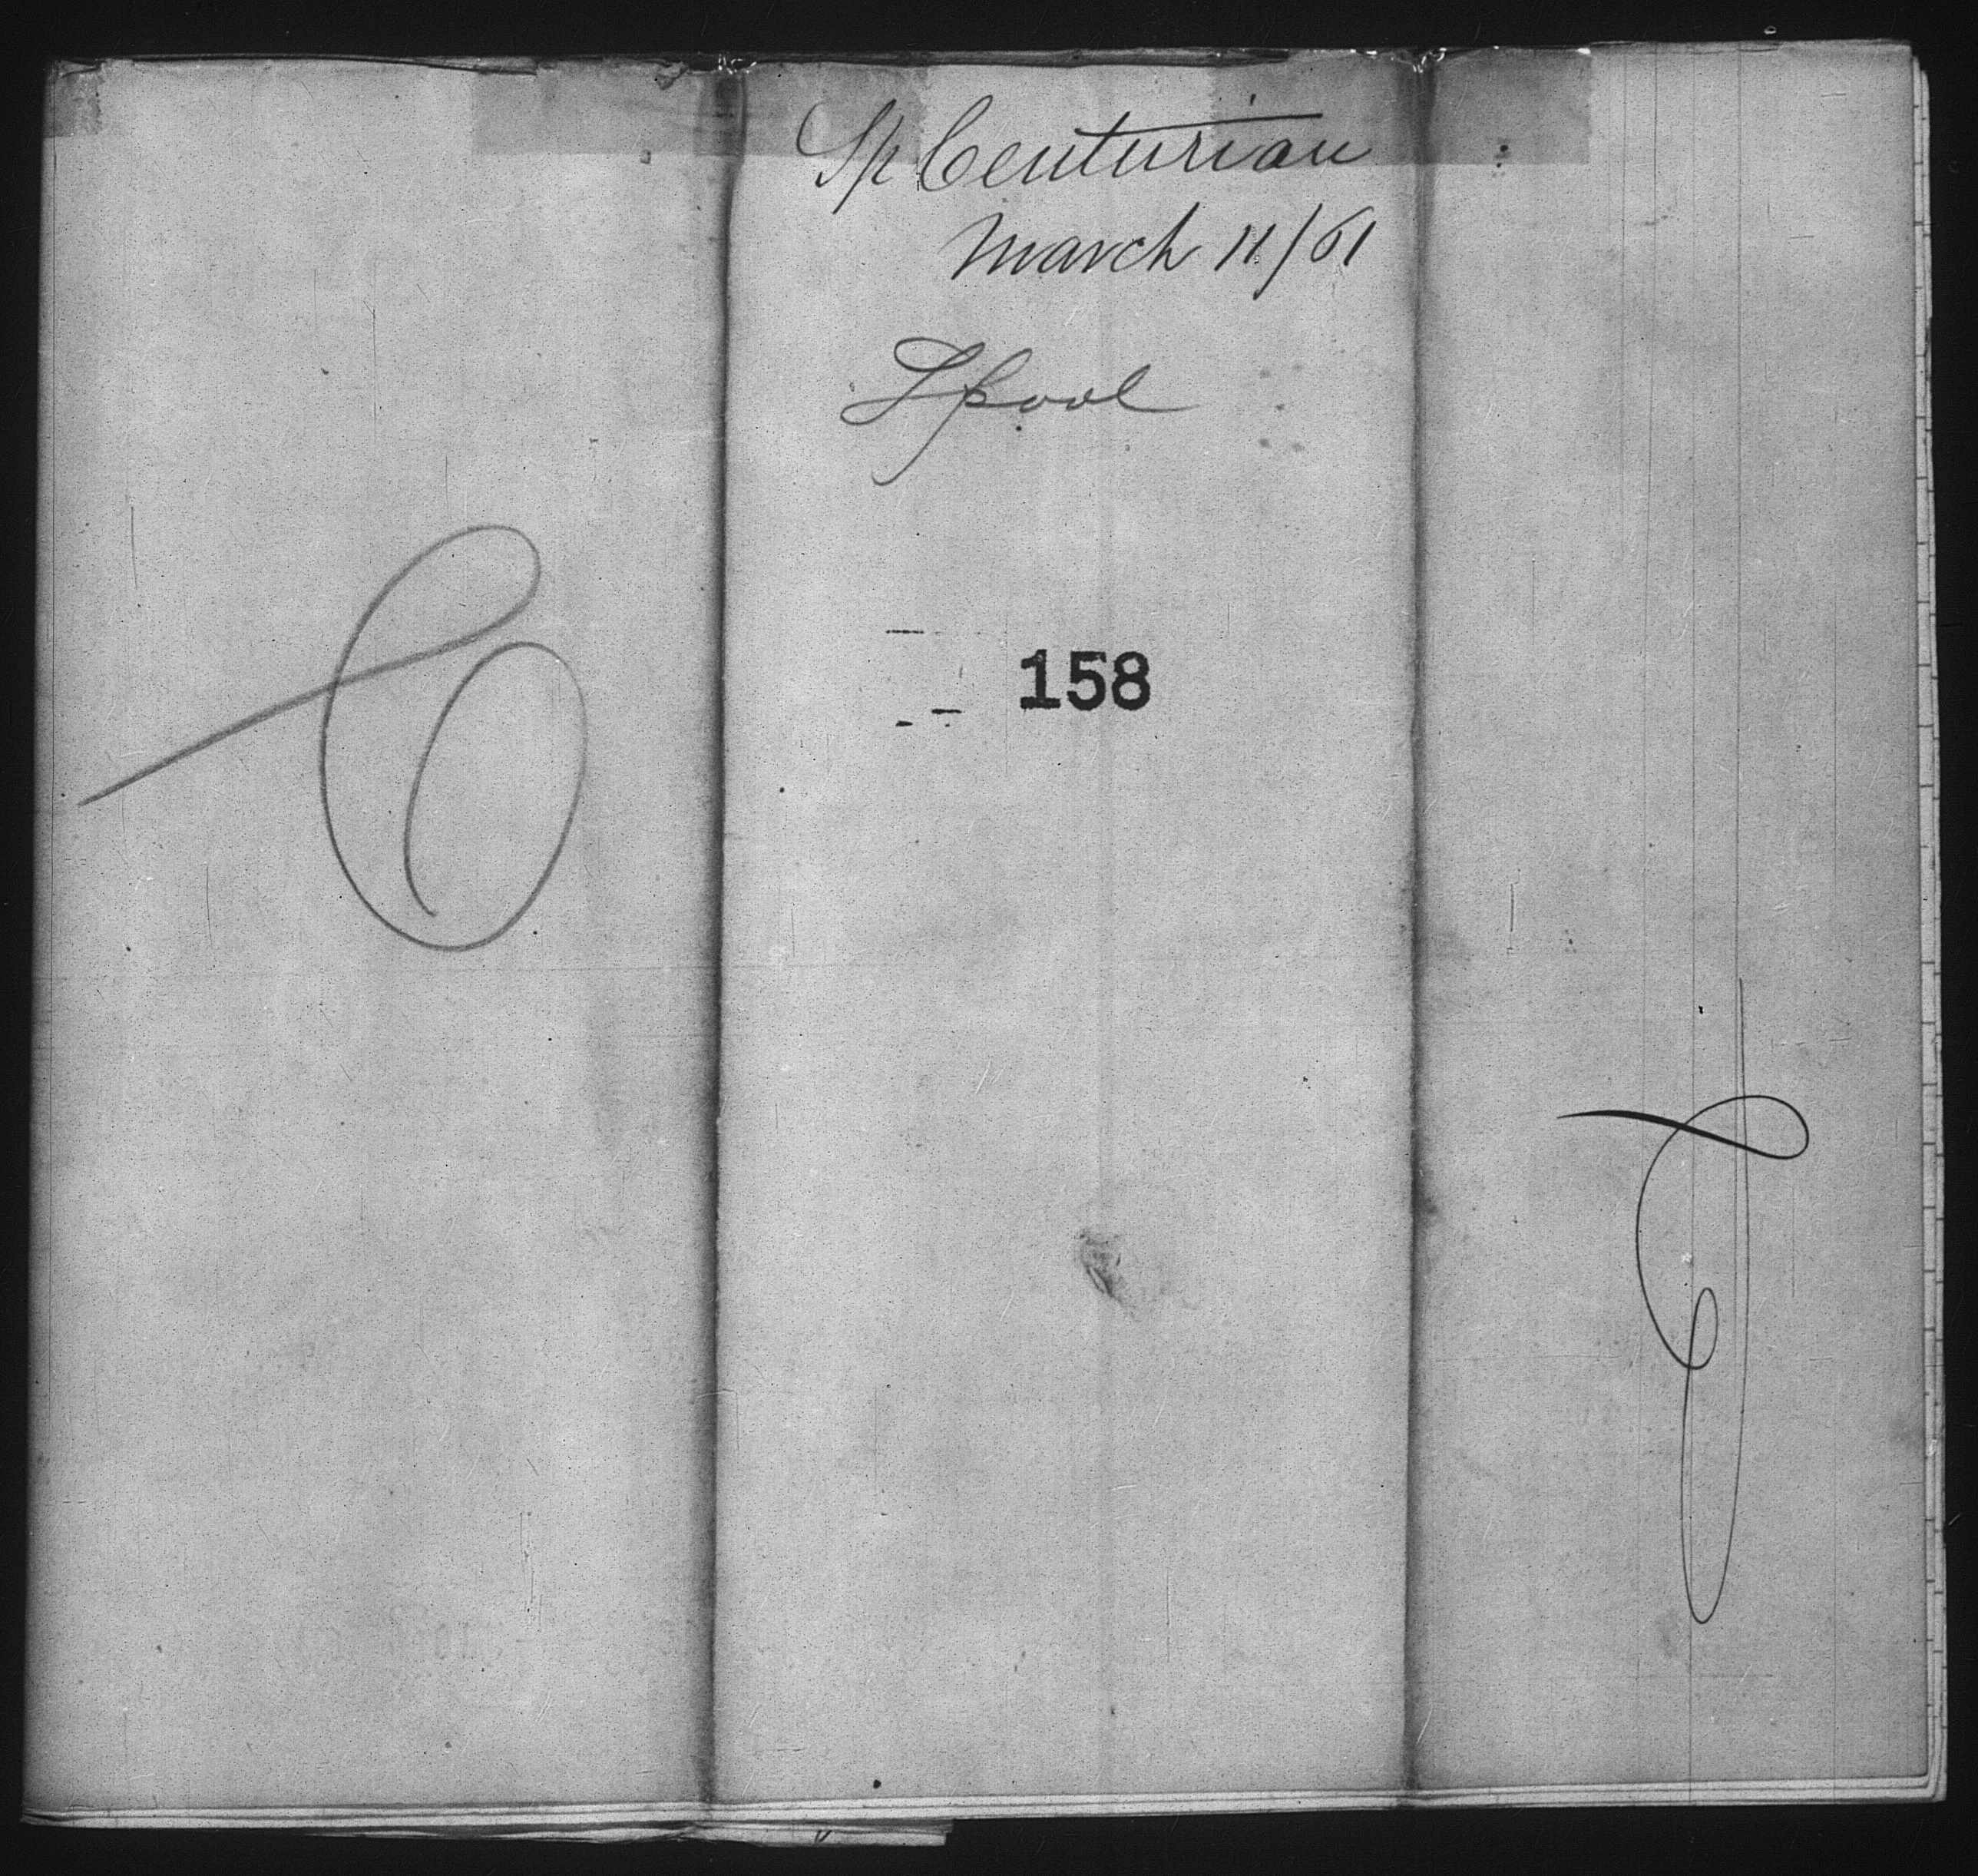 Sp Centurian
March 11/61
Lpool
158